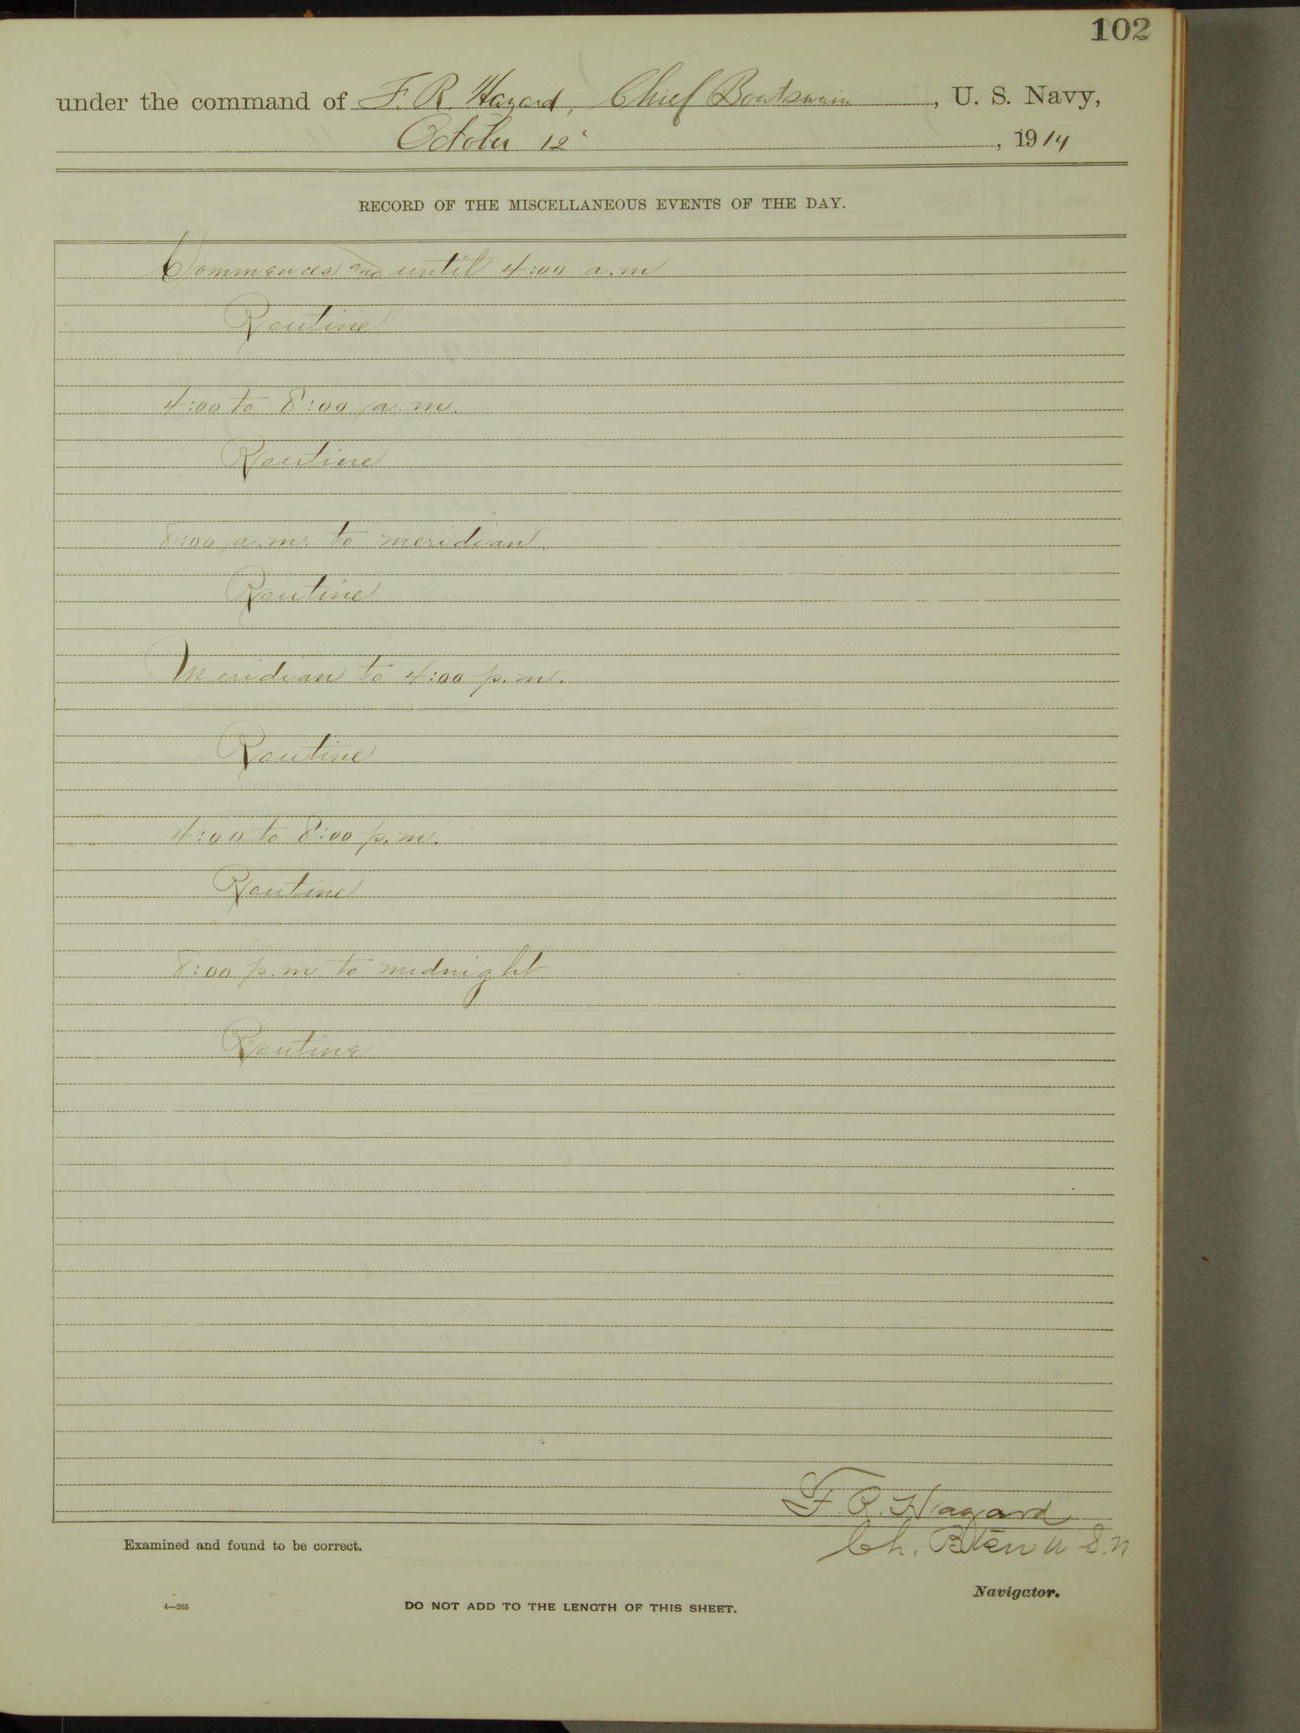 102
under the command of F. R. Hazard, Chief Boatswain, U. S. Navy,
October 12, 1914
RECORD OF THE MISCELLANEOUS EVENTS OF THE DAY.
Commences and until 4:00 a.m
Routine
4:00 to 8:00 a.m.
Routine
8:00 a.m. to meridian.
Routine
Meridian to 4:00 p.m.
Routine
4:00 to 8:00 p.m.
Routine
8:00 p.m to midnight
Routine
F R. Hazard
Ch. Btsn U S.N
Examined and found to be correct.
Navigator.
4—265
DO NOT ADD TO THE LENGTH OF THIS SHEET.